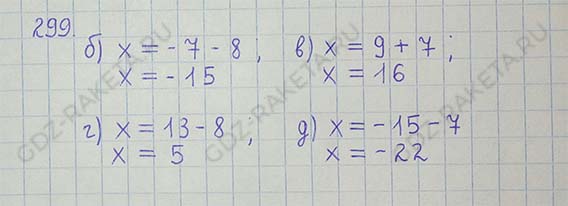 299.
б) x = - 7 - 8 ; в) x = 9 + 7 ;
x = - 15 x = 16
г) x = 13 - 8 ; д) x = - 15 - 7
x = 5 x = - 22
GDZ-RAKETA.RU
GDZ-RAKETA.RU
GDZ-RAKETA.RU
GDZ-RAKETA.RU